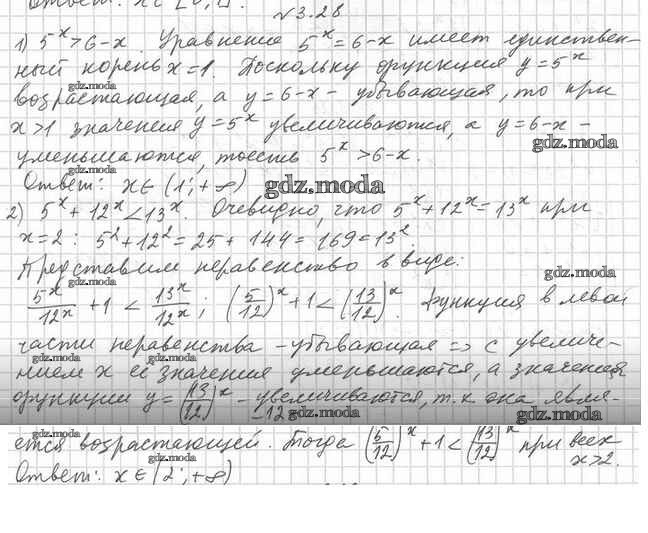 Ответ: x ∈ [0,
№3.28
1) 5^x > 6-x. Уравнение 5^x = 6-x имеет единствен-
ный корень x=1. Поскольку функция y=5^x
gdz.moda
возрастающая, а y=6-x - убывающая, то при
x>1 значения y=5^x увеличиваются, а y=6-x -
gdz.moda
уменьшаются, тоесть 5^x > 6-x.
gdz.moda
Ответ: x∈(1; +∞)
gdz.moda
2) 5^x + 12^x < 13^x. Очевидно, что 5^x + 12^x = 13^x при
x=2: 5^2 + 12^2 = 25 + 144 = 169 = 13^2.
gdz.moda
Представим неравенство в виде:
gdz.moda
gdz.moda
5^x/12^x + 1 < 13^x/12^x; (5/12)^x + 1 < (13/12)^x. Функция в левой
части неравенства - убывающая => с увеличе-
gdz.moda gdz.moda
нием x её значения уменьшаются, а значения
gdz.moda
функции y = (13/12)^x - увеличиваются, т.к. она явля-
-12
gdz.moda gdz.moda
gdz.moda
ется возрастающей. Тогда (5/12)^x + 1 < (13/12)^x при всех
x>2.
gdz.moda
Ответ: x∈(2; +∞)